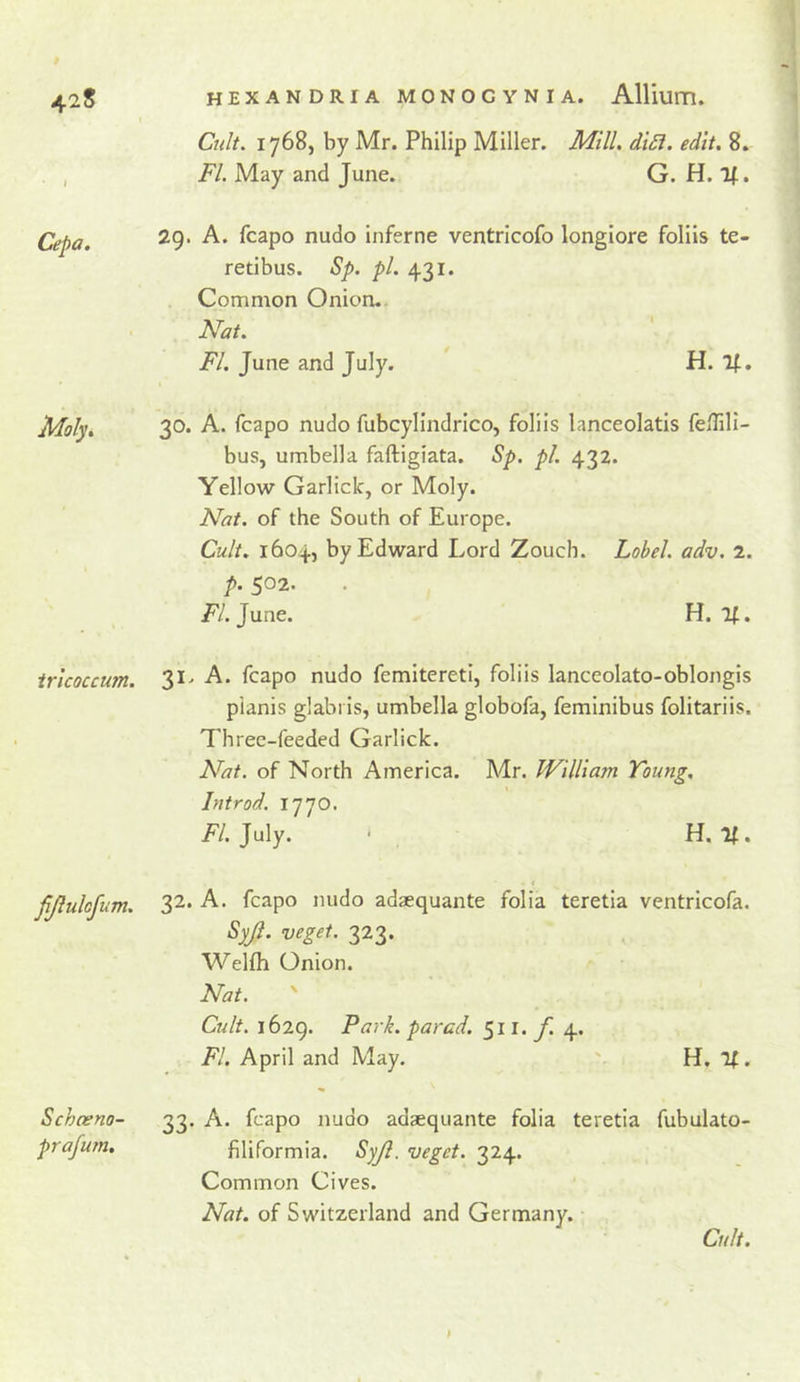 428 HEXANDRIA MONOGYNIA. Allium.
Cult. 1768, by Mr. Philip Miller. Mill. dict. edit. 8.
Fl. May and June. G. H. ♃.
Cepa. 29. A. ſcapo nudo inferne ventricoſo longiore foliis te-
retibus. Sp. pl. 431.
Common Onion.
Nat.
Fl. June and July. H. ♃.
Moly. 30. A. ſcapo nudo ſubcylindrico, foliis lanceolatis ſeſſili-
bus, umbella faſtigiata. Sp. pl. 432.
Yellow Garlick, or Moly.
Nat. of the South of Europe.
Cult. 1604, by Edward Lord Zouch. Lobel. adv. 2.
p. 502.
Fl. June. H. ♃.
tricoccum. 31. A. ſcapo nudo ſemitereti, foliis lanceolato-oblongis
planis glabris, umbella globoſa, ſeminibus ſolitariis.
Three-ſeeded Garlick.
Nat. of North America. Mr. William Young.
Introd. 1770.
Fl. July. H. ♃.
fiſtuloſum. 32. A. ſcapo nudo adæquante folia teretia ventricoſa.
Syſt. veget. 323.
Welſh Onion.
Nat.
Cult. 1629. Park. parad. 511. f. 4.
Fl. April and May. H. ♃.
Schœno- 33. A. ſcapo nudo adæquante folia teretia ſubulato-
praſum. filiformia. Syſt. veget. 324.
Common Cives.
Nat. of Switzerland and Germany.
Cult.